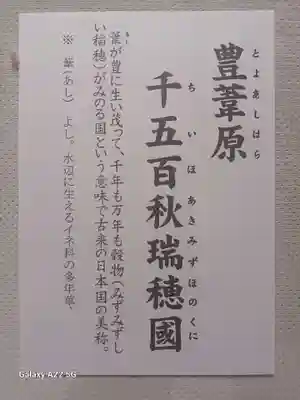 とよあしはら
豊葦原
ちいほあきみずほのくに
千五百秋瑞穂國
葦が豊に生い茂って、千年も万年も穀物(みずみずし
い稲穂)がみのる国という意味で古来の日本国の美称。
※ 葦(あし) よし。水辺に生えるイネ科の多年草。
Galaxy A22 5G